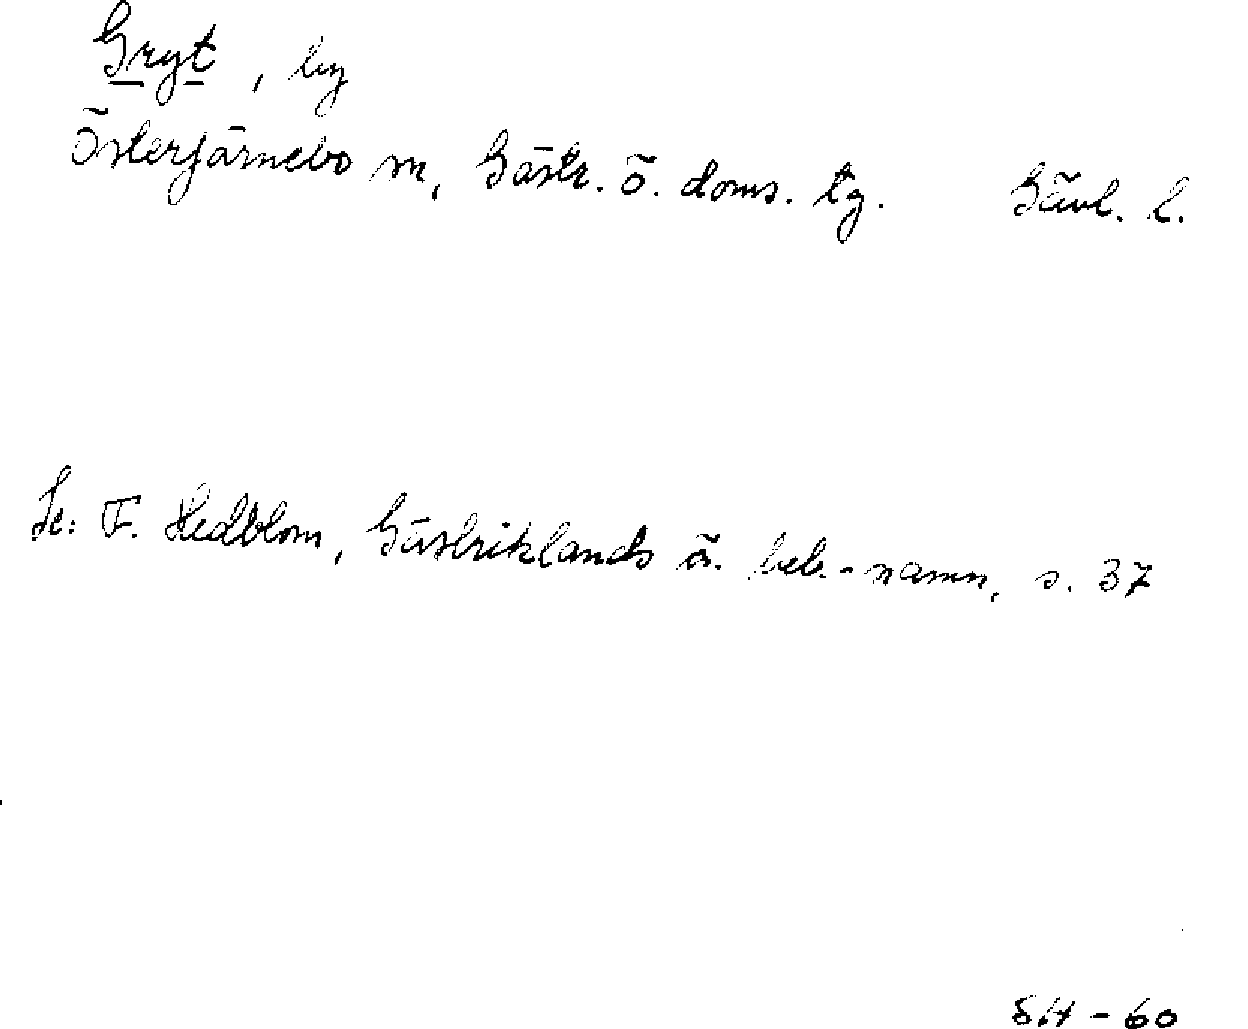 Gryt, by
Österfärnebo sn, Gästr. ö. doms. tg. Gävl. l.
Se: F. Hedblom, Gästriklands ä. beb.-namn, s. 37
SH-60